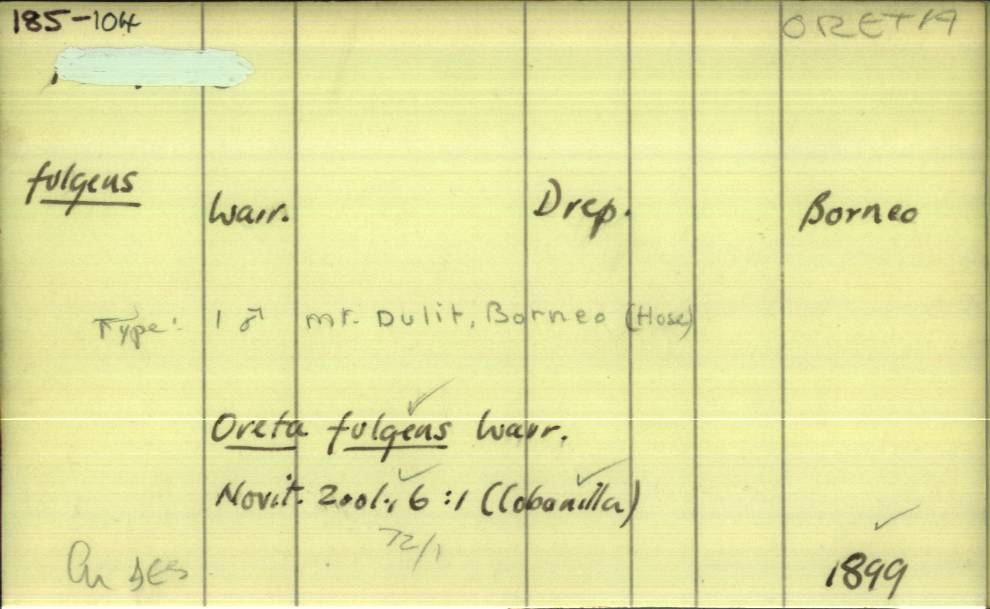 185-104 ORETA
fulgens Warr. Drep. Borneo
Type: 1 ♂ Mt. Dulit, Borneo (Hose)
Oreta fulgens Warr.
Novit. Zool., 6 :1 (Cobanilla)
72/1
1899